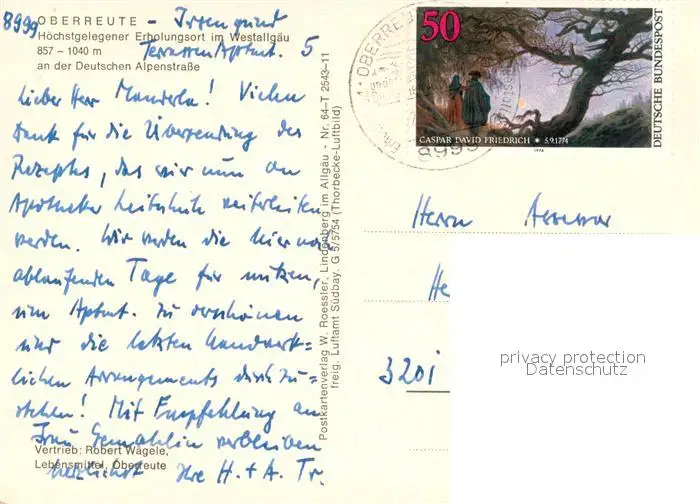 8999 OBERREUTE - Irsengund
Höchstgelegener Erholungsort im Westallgäu
857 – 1040 m Terrassen Aptmt. 5
an der Deutschen Alpenstraße
lieber Herr Manderla! Vielen
Dank für die Übersendung des
Rezeptes, das wir nun an
Apotheker weiterleiten
werden. Wir werden die hier noch
ablaufenden Tage für nutzen,
um Aptmt. zu verschönen
und die letzten handwerk-
lichen Arrangements durchzu=
stehen! Mit Empfehlung an
Frau Gemahlin verbleiben
herzlichst Ihre H. + A. Tr.
Vertrieb: Robert Wägele,
Lebensmittel, Oberreute
Postkartenverlag W. Roessler, Lindenberg im Allgäu - Nr. 64–T 2543–11
freig. Luftamt Südbay. G 5/5754 (Thorbecke-Luftbild)
50
CASPAR DAVID FRIEDRICH * 5.9.1774
1974
DEUTSCHE BUNDESPOST
OBERREUTE
8999
Herrn Assessor
He
3201
privacy protection
Datenschutz